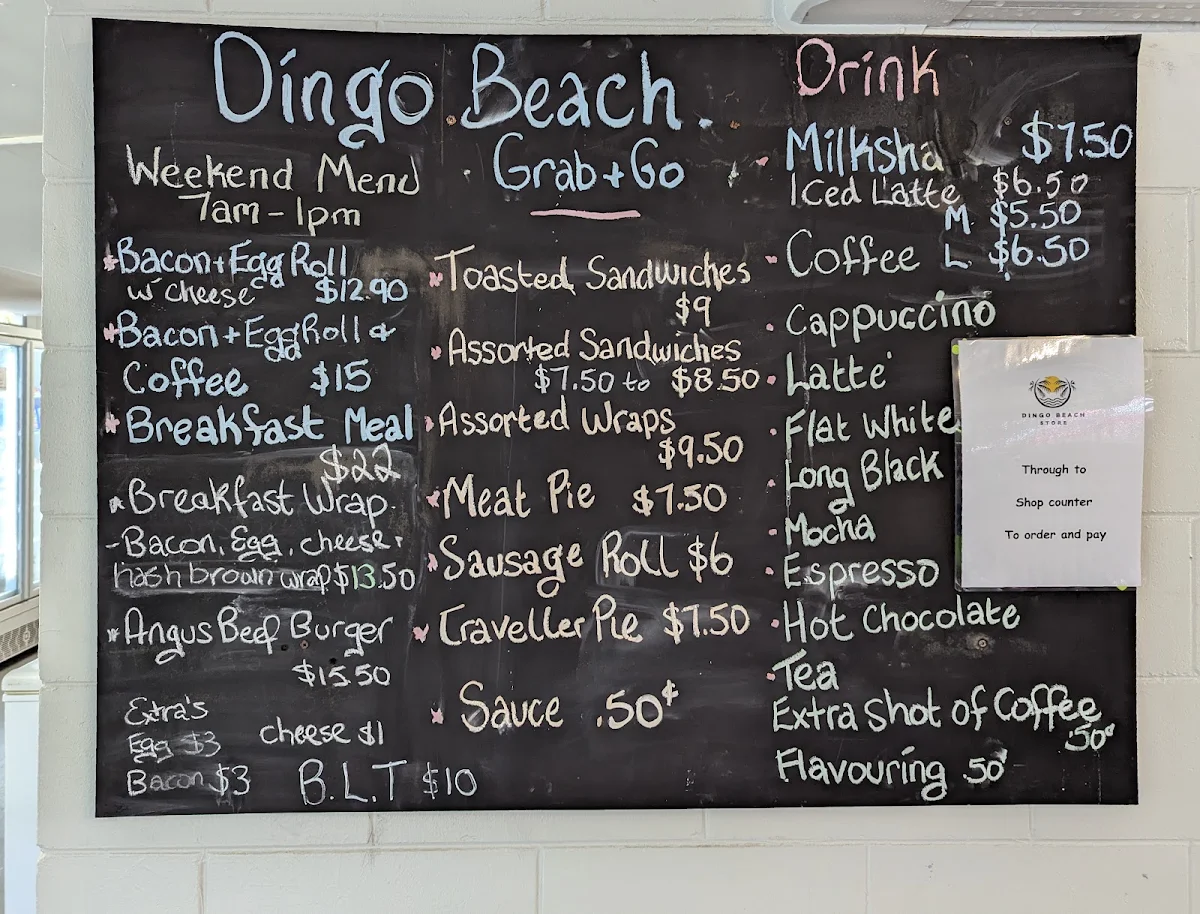 Dingo Beach.
Weekend Menu
7am - 1pm
* Bacon + Egg Roll
w' cheese $12.90
* Bacon + Egg Roll &
Coffee $15
* Breakfast Meal
$22
* Breakfast Wrap.
- Bacon, Egg, cheese,
hash brown wrap $13.50
* Angus Beef Burger
$15.50
Extra's
Egg $3 cheese $1
Bacon $3 B.L.T $10
Grab + Go
* Toasted Sandwiches
$9
* Assorted Sandwiches
$7.50 to $8.50
* Assorted Wraps
$9.50
* Meat Pie $7.50
* Sausage Roll $6
* Traveller Pie $7.50
* Sauce .50¢
Drink
Milksha $7.50
Iced Latte $6.50
M $5.50
Coffee L $6.50
Cappuccino
Latte'
Flat White
Long Black
Mocha
Espresso
Hot Chocolate
Tea
Extra Shot of Coffee
.50¢
Flavouring .50
DINGO BEACH
STORE
Through to
Shop counter
To order and pay